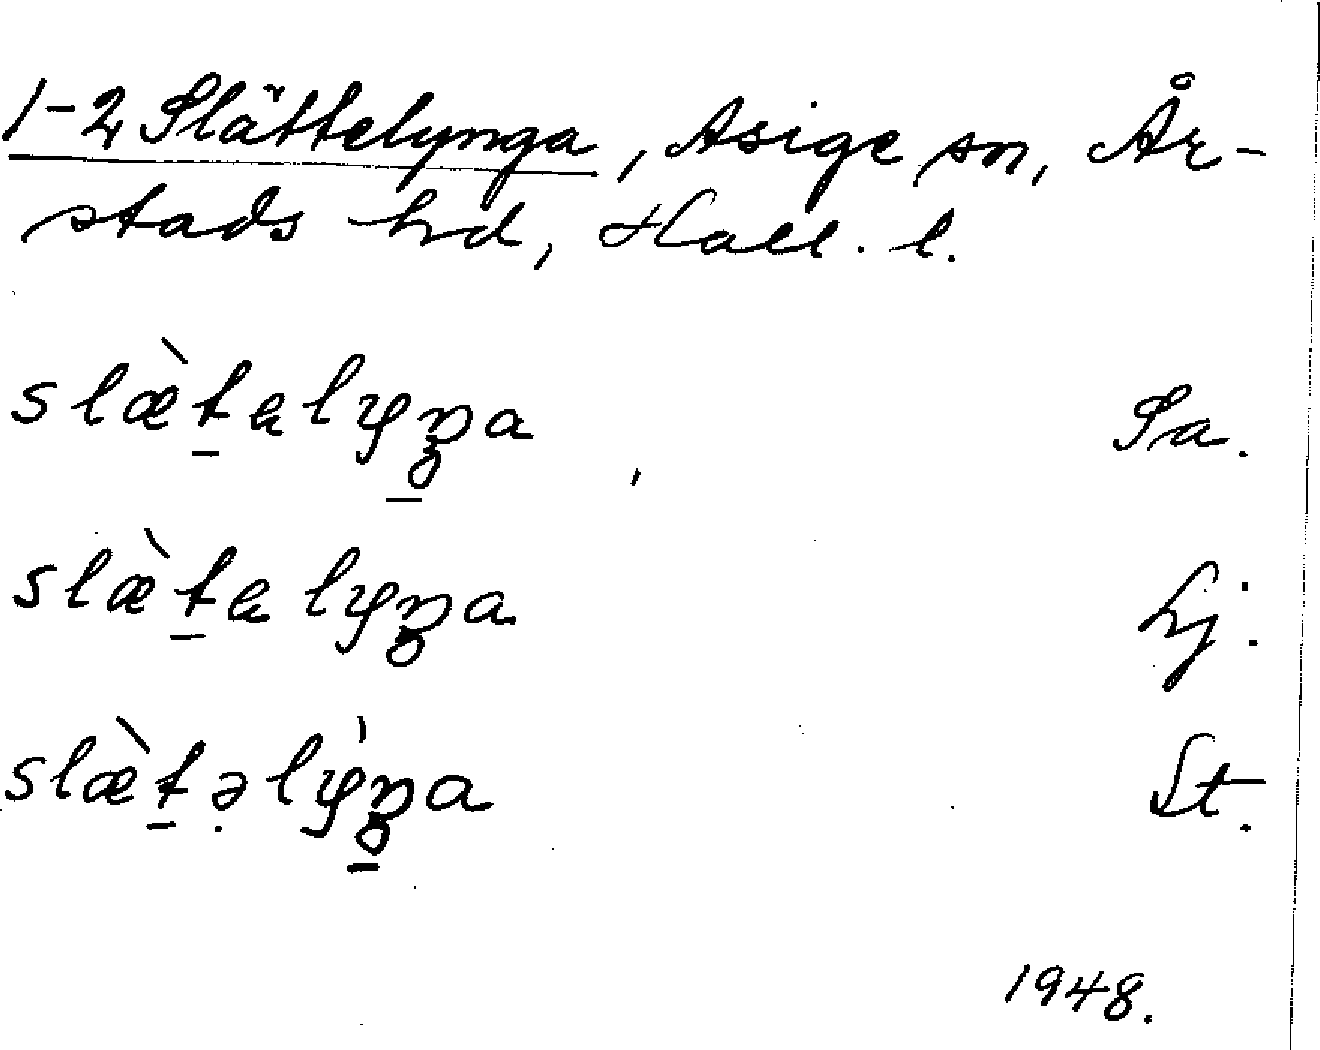 1-2 Slättelynga, Asige sn, År-
stads hd, Hall. l.
slæ̀t̲elyŋ̲a Sa.
slæ̀t̲elyŋa Lj.
slæ̀t̲ə̣lỳŋ̲a St.
1948.